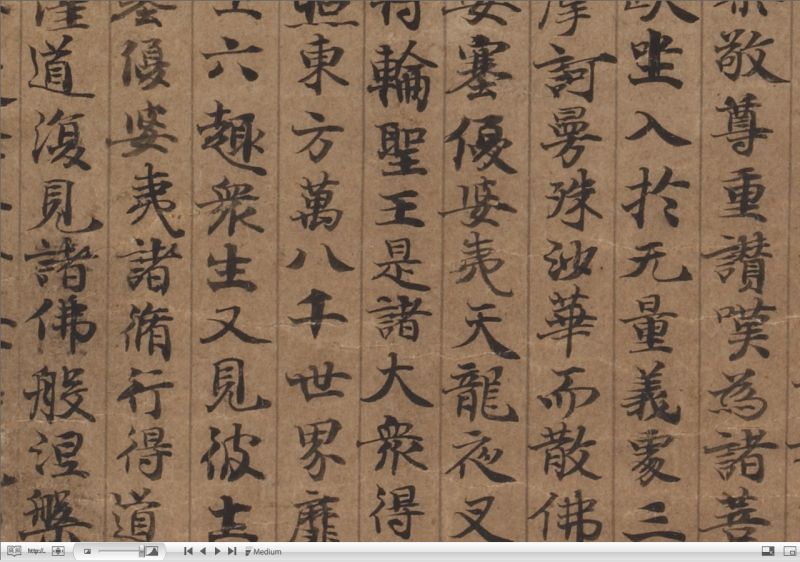 敬尊重讃嘆為諸菩
坐入於无量義處三
摩訶曼殊沙華而散佛
婆塞優婆夷天龍夜叉
輪聖王是諸大衆得
照東方萬八千世界靡
土六趣衆生又見彼土
塞優婆夷諸脩行得道
道復見諸佛般涅槃
http://.. Medium